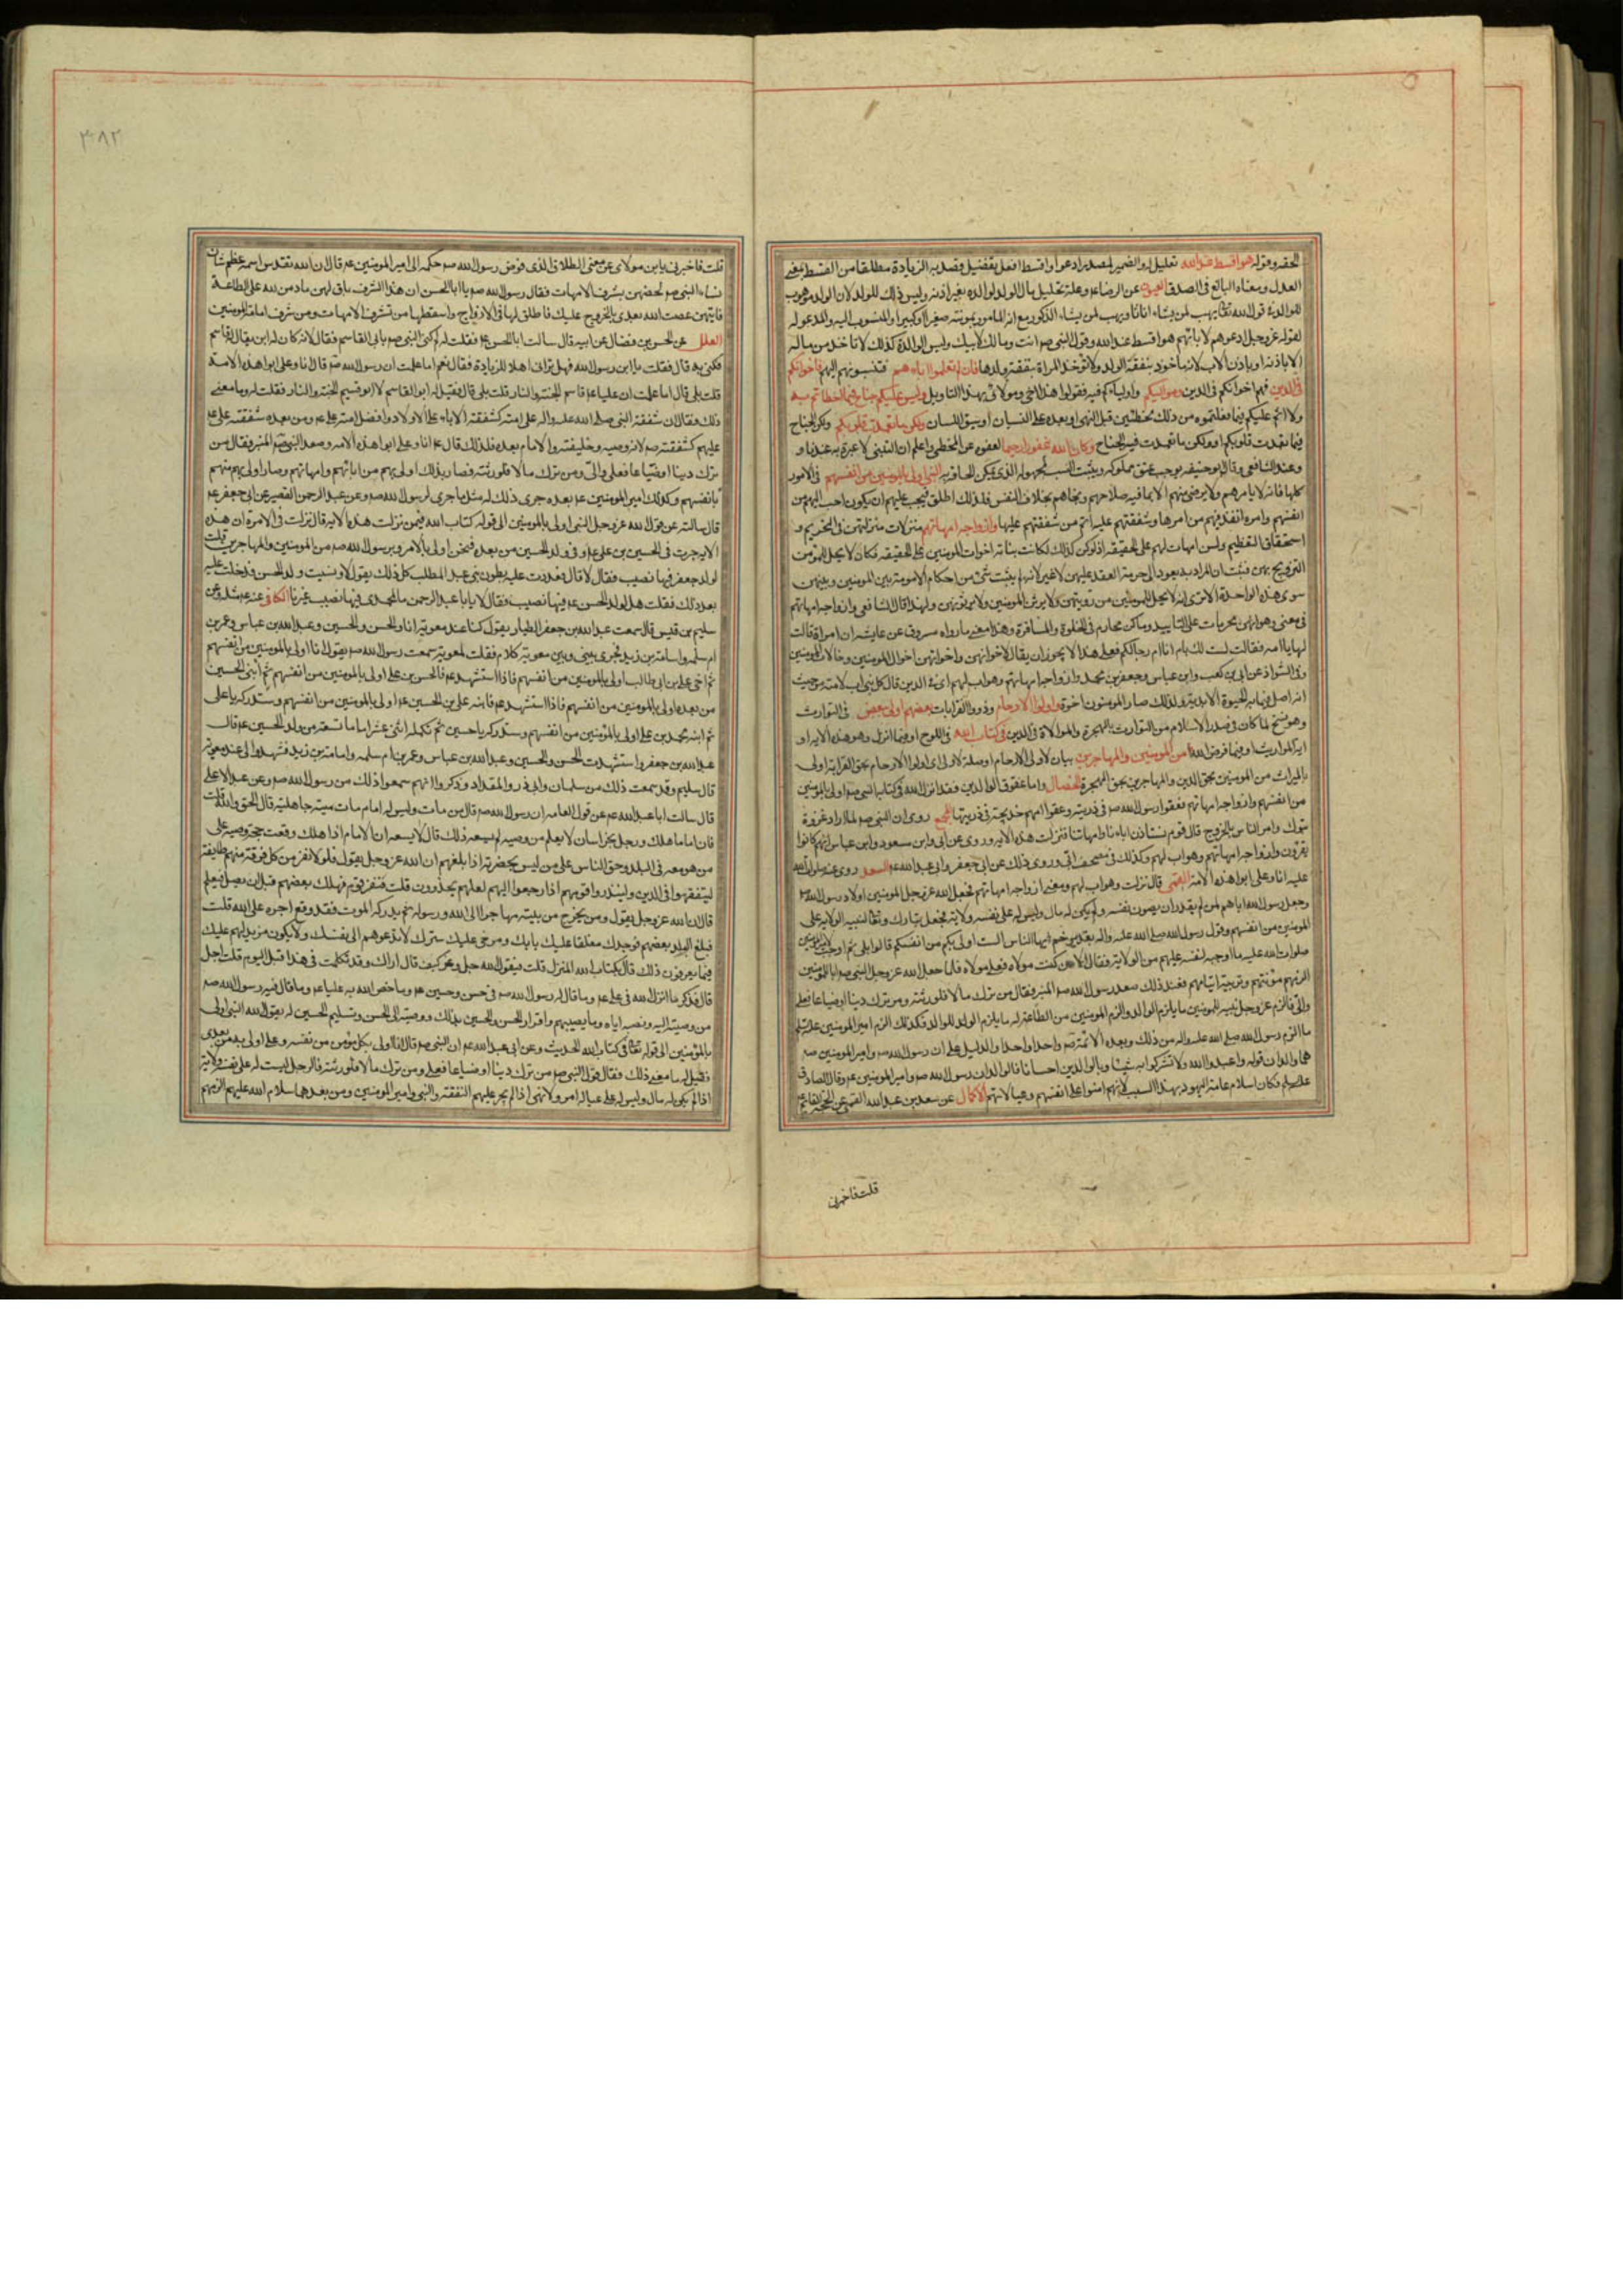 الحقه وقوله هو اقسط عند الله تعليل له والضمير لمصدر ادعوا واقسط افعل تفضيل قصد به الزيادة مطلقا من القسط بمعنى
العدل ومعناه البالغ في الصدق العيون عن الرضا ع وعلة تحليل مال الولد لوالده بغير اذنه وليس ذلك للولد لان الولد موهوب
للوالد في قول الله تعالى يهب لمن يشاء اناثا ويهب لمن يشاء الذكور مع انه المأخوذ بمونته صغيرا او كبيرا والمنسوب اليه والمدعو له
لقوله عز وجل ادعوهم لابائهم هو اقسط عند الله وقول النبي صم انت ومالك لابيك وليس الوالدة كذلك لا تاخذ من ماله
الا باذنه او باذن الاب لانه ماخوذ بنفقة الولد ولا تؤخذ المراة بنفقة ولدها فان لم تعلموا اباءهم فتنسبونهم اليهم فاخوانكم
في الدين فهم اخوانكم في الدين ومواليكم واولياءكم فيه فقولوا هذا اخي ومولائي بهذا التاويل وليس عليكم جناح فيما اخطاتم به
ولا اثم عليكم فيما فعلتموه من ذلك مخطئين قبل النهي او بعده على النسيان او سبق اللسان ولكن ما تعمدت قلوبكم ولكن الجناح
فيما تعمدت قلوبكم او ولكن ما تعمدت فيه الجناح وكان الله غفورا رحيما لعفوه عن المخطي واعلم ان التبني لا عبرة به عندنا و
وعند الشافعي وقال ابو حنيفه يوجب عتق مملوكه ويثبت النسب لمجهوله الذي يمكن الحاقه به النبي اولى بالمومنين من انفسهم في الامور
كلها فانه لا يامرهم ولا يرضى منهم الا بما فيه صلاحهم ونجاحهم بخلاف النفس فلذلك اطلق فيجب عليهم ان يكون احب اليهم من
انفسهم وامره انفذ فيهم من امرها وشفقتهم عليه اتم من شفقتهم عليها وازواجه امهاتهم منزلات منزلتهن في التحريم و
استحقاق التعظيم ولسن امهات لهم على الحقيقة اذ لو كن كذلك لكانت بناته اخوات المومنين على الحقيقه فكان لا يحل للمومن
التزويج بهن فثبت ان المراد به يعود الى حرمة العقد عليهن لا غير لانه لم يثبت شئ من احكام الامومة بين المومنين وبينهن
سوى هذه الواحدة الا ترى انه لا يحل للمومنين من رويتهن ولا يرثن المومنين ولا يرثونهن ولهذا قال الشافعي وازواجه امهاتهم
في معنى وهو انهن محرمات على التابيد وما كن محارم في الخلوة والمسافرة وهذا معنى ما رواه مسروق عن عايشه ان امراة قالت
لها يا امه فقالت لست لك بام انا ام رجالكم فعلى هذا لا يجوز ان يقال لاخوانهن واخواتهن اخوال المومنين وخالات المومنين
وفي الشواذ عن ابي بن كعب وابن عباس وجعفر بن محمد وازواجه امهاتهم وهو اب لهم اي في الدين قال كل نبي اب لامته من حيث
انه اصل فيما به الحيوة الابدية ولذلك صار المومنون اخوة واولوا الارحام وذووا القرابات بعضهم اولى ببعض في التوارث
وهو نسخ لما كان في صدر الاسلام من التوارث بالهجرة والموالاة في الدين في كتاب الله في اللوح او فيما انزل وهو هذه الايه او
اية المواريث او فيما فرض الله من المومنين والمهاجرين بيان لاولي الارحام او صلة لاولى اي اولوا الارحام بحق القرابة اولى
بالميراث من المومنين بحق الدين والمهاجرين بحق الهجرة الخصال واما عقوق الوالدين فقد انزل الله في كتابه النبي صم اولى بالمومنين
من انفسهم وازواجه امهاتهم فعقوا رسول الله صم في ذريته وعقوا امهم خديجة في ذريتها المجمع روى ان النبي صم لما اراد غزوة
تبوك وامر الناس بالخروج قال قوم نستاذن اباءنا وامهاتنا فنزلت هذه الايه وروى عن ابي وابن مسعود وابن عباس انهم كانوا
يقرؤن وازواجه امهاتهم وهو اب لهم وكذلك في مصحف ابي وروى ذلك عن ابي جعفر وابي عبد الله عم السعد روى عنه صلوات الله
عليه انا وعلى ابوا هذه الامة القمي قال نزلت وهو اب لهم ومعنى ازواجه امهاتهم فجعل الله عز وجل المومنين اولاد رسول الله صم
وجعل رسول الله اباهم لمن لم يقدر ان يصون نفسه ولم يكن له مال وليس له على نفسه ولاية فجعل تبارك وتعالى لنبيه الولاية على
المومنين من انفسهم وقول رسول الله صلى الله عليه واله بغدير خم ايها الناس الست اولى بكم من انفسكم قالوا بلى ثم اوجب لامير المومنين
صلوات الله عليه ما اوجبه لنفسه عليهم من الولاية فقال الا من كنت مولاه فعلي مولاه فلما جعل الله عز وجل النبي صم ابا للمومنين
الزمهم مؤنتهم وتربية ايتامهم فعند ذلك صعد رسول الله صم المنبر فقال من ترك مالا فلورثته ومن ترك دينا او ضياعا فعلي
والي فالزم عز وجل نبيه للمومنين ما يلزم الوالد والزم المومنين من الطاعة له ما يلزم الولد للوالد فكذلك الزم امير المومنين
ما الزم رسول الله صلى الله عليه واله من ذلك وبعده الائمة صم واحدا واحدا والدليل على ان رسول الله صم وامير المومنين صم
هما والدان قوله واعبدوا الله ولا تشركوا به شيئا وبالوالدين احسانا فالوالدان رسول الله صم وامير المومنين عم وقال الصادق
فكان اسلام عامة اليهود بهذا السبب لانهم امنوا على انفسهم وعيالاتهم الاكمال عن سعد بن عبد الله القمي عن الحجة القائم عم
قلت فاخبرني
٣٠٨٢
قلت فاخبرني يابن مولاي عن معنى الطلاق الذي فوض رسول الله صم حكمه الى امير المومنين عم قال ان الله تقدس اسمه عظم شان
نساء النبي صم فخصهن بشرف الامهات فقال رسول الله صم يا ابا الحسن ان هذا الشرف باق لهن ما دمن لله على الطاعة
فايتهن عصت الله بعدي بالخروج عليك فاطلق لها في الازواج واسقطها من تشرف الامهات ومن شرف امامة المومنين
العلل عن الحسن بن فضال عن ابيه قال سالت ابا الحسن عم فقلت له لم كني النبي صم بابي القاسم فقال لانه كان له ابن يقال له قاسم
فكني به قال فقلت يا ابن رسول الله فهل تراني اهلا للزيادة فقال نعم اما علمت ان رسول الله صم قال انا وعلي ابوا هذه الامة
قلت بلى قال اما علمت ان عليا عم قاسم الجنة والنار قلت بلى قال فقيل له ابو القاسم لانه ابو قسيم الجنة والنار فقلت له وما معنى
ذلك فقال ان شفقة النبي صلى الله عليه واله على امته كشفقة الاباء على الاولاد وافضل امته علي عم ومن بعده شفقة علي عم
عليهم كشفقته صم لانه وصيه وخليفته والامام بعده فلذلك قال عم انا وعلي ابوا هذه الامه وصعد النبي صم المنبر فقال من
ترك دينا او ضياعا فعلي والي ومن ترك مالا فلورثته فصار بذلك اولى بهم من ابائهم وامهاتهم وصار اولى بهم منهم
بانفسهم وكذلك امير المومنين عم بعده جرى ذلك له مثل ما جرى لرسول الله صم وعن عبد الرحمن القصير عن ابي جعفر عم
قال سالته عن قول الله عز وجل النبي اولى بالمومنين الى قوله كتاب الله فيمن نزلت هذه الايه قال نزلت في الامرة ان هذه
الاية جرت في الحسين بن علي عم وفي ولد الحسين من بعده فنحن اولى بالامر وبرسول الله صم من المومنين والمهاجرين قلت
لولد جعفر فيها نصيب فقال لا قال فعددت عليه بطون بني عبد المطلب كل ذلك يقول لا ونسيت ولد الحسن فدخلت عليه
بعد ذلك فقلت هل لولد الحسن عم فيها نصيب فقال لا يا ابا عبد الرحمن ما لمحمدي فيها نصيب غيرنا الكافي عنه عم مثله وعن
سليم بن قيس قال سمعت عبد الله بن جعفر الطيار يقول كنا عند معوية انا والحسن والحسين وعبد الله بن عباس وعمر بن
ام سلمه واسامة بن زيد فجرى بيني وبين معوية كلام فقلت لمعوية سمعت رسول الله صم يقول انا اولى بالمومنين من انفسهم
ثم اخي علي بن ابي طالب اولى بالمومنين من انفسهم فاذا استشهد عم فالحسن بن علي اولى بالمومنين من انفسهم ثم ابني الحسين
من بعده اولى بالمومنين من انفسهم فاذا استشهد عم فابنه علي بن الحسين عم اولى بالمومنين من انفسهم وستدركه يا علي
ثم ابنه محمد بن علي اولى بالمؤمنين من انفسهم وستدركه يا حسين ثم تكمله اثنى عشر اماما تسعة من ولد الحسين عم قال
عبد الله بن جعفر واستشهدت الحسن والحسين وعبد الله بن عباس وعمر بن ام سلمه واسامة بن زيد فشهدوا لي عند معوية
قال سليم وقد سمعت ذلك من سلمان وابي ذر والمقداد وذكروا انهم سمعوا ذلك من رسول الله صم وعن عبد الاعلى
قال سالت ابا عبد الله عم عن قول العامه ان رسول الله صم قال من مات وليس له امام مات ميتة جاهلية قال الحق والله قلت
فان اماما هلك ورجل بخراسان لا يعلم من وصيه لم يسعه ذلك قال لا يسعه ان الامام اذا هلك وقعت حجة وصيه على
من هو معه في البلد وحق الناس على من ليس بحضرته اذا بلغهم ان الله عز وجل يقول فلولا نفر من كل فرقة منهم طايفة
ليتفقهوا في الدين ولينذروا قومهم اذا رجعوا اليهم لعلهم يحذرون قلت فنفر قوم فهلك بعضهم قبل ان يصل فيعلم
قال ان الله عز وجل يقول ومن يخرج من بيته مهاجرا الى الله ورسوله ثم يدركه الموت فقد وقع اجره على الله قلت
فبلغ البلد بعضهم فوجدك مغلقا عليك بابك ومرخى عليك سترك لا تدعوهم الى نفسك ولا يكون من يدلهم عليك
فيما يعرفون ذلك قال بكتاب الله المنزل قلت فيقول الله جل وعز كيف قال اراك وقد تكلمت في هذا قبل اليوم قلت اجل
قال فذكر ما انزل الله في علي عم وما قال له رسول الله صم في حسن وحسين عم وما خص الله به عليا عم وما قال فيه رسول الله صم
من وصيته اليه ونصبه اياه وما يصيبهم واقرار الحسن والحسين بذلك ووصيته الى الحسن وتسليم الحسين له بقول الله النبي اولى
بالمؤمنين الى قوله تعالى في كتاب الله الحديث وعن ابي عبد الله عم ان النبي صم قال انا اولى بكل مؤمن من نفسه وعلي اولى به من بعدي
فقيل له ما معنى ذلك فقال قول النبي صم من ترك دينا او ضياعا فعلي ومن ترك مالا فلورثته فالرجل ليست له على نفسه ولاية
اذا لم يكن له مال وليس له على عياله امر ولا نهي اذا لم يجر عليهم النفقة والنبي وامير المومنين ومن بعدهما سلام الله عليهم الزمهم